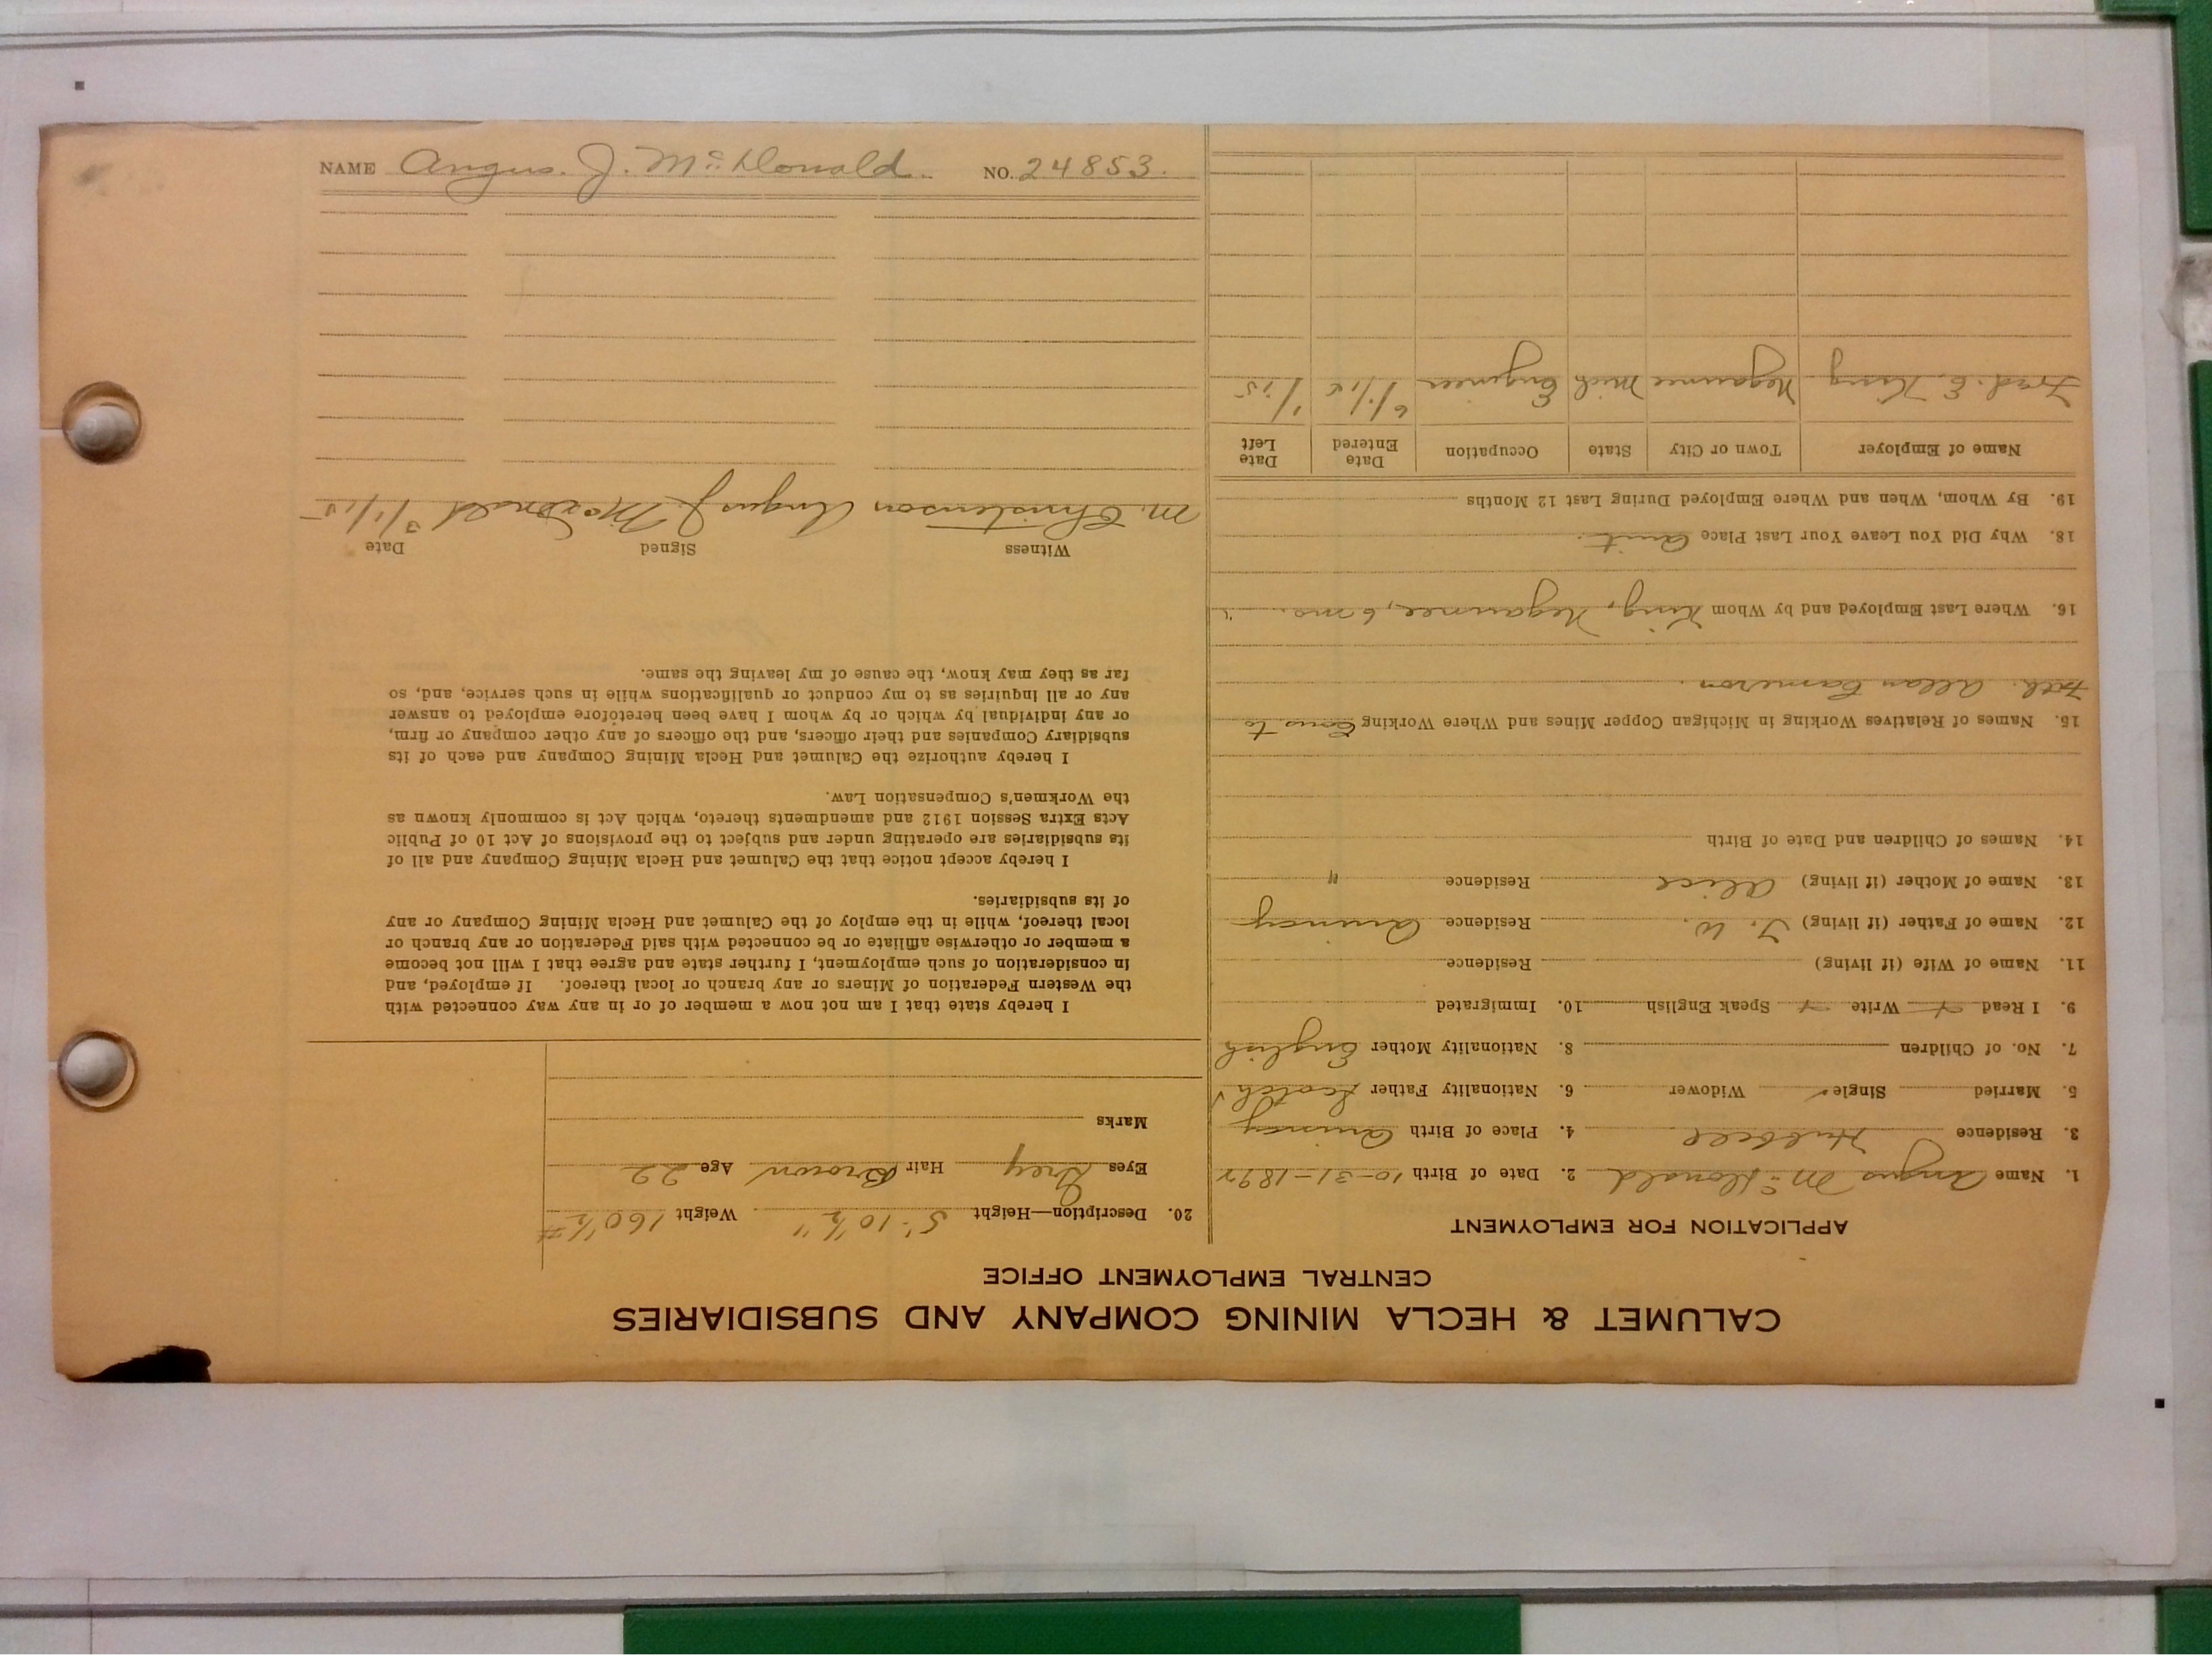 CALUMET & HECLA MINING COMPANY AND SUBSIDIARIES
CENTRAL EMPLOYMENT OFFICE
APPLICATION FOR EMPLOYMENT
1. Name Angus McDonald 2. Date of Birth 10-31-1892
3. Residence Hubbell 4. Place of Birth Quincy
5. Married Single ✓ Widower 6. Nationality Father Scotch
7. No. of Children 8. Nationality Mother English
9. I Read Write Speak English 10. Immigrated
11. Name of Wife (if living) Residence
12. Name of Father (if living) J. W. Residence Quincy
13. Name of Mother (if living) Alice Residence "
14. Names of Children and Date of Birth
15. Names of Relatives Working in Michigan Copper Mines and Where Working
Allan Cameron.
16. Where Last Employed and by Whom King, Negaunee, 6 mo.
18. Why Did You Leave Your Last Place Quit.
19. By Whom, When and Where Employed During Last 12 Months
Name of Employer Town or City State Occupation Date Entered Date Left
Fred. E. King Negaunee Mich Engineer
20. Description—Height 5'-10½" Weight 160½#
Eyes Grey Hair Brown Age 22
Marks
I hereby state that I am not now a member of or in any way connected with
the Western Federation of Miners or any branch or local thereof. If employed, and
in consideration of such employment, I further state and agree that I will not become
a member or otherwise affiliate or be connected with said Federation or any branch or
local thereof, while in the employ of the Calumet and Hecla Mining Company or any
of its subsidiaries.
I hereby accept notice that the Calumet and Hecla Mining Company and all of
its subsidiaries are operating under and subject to the provisions of Act 10 of Public
Acts Extra Session 1912 and amendments thereto, which Act is commonly known as
the Workmen's Compensation Law.
I hereby authorize the Calumet and Hecla Mining Company and each of its
subsidiary Companies and their officers, and the officers of any other company or firm,
or any individual by which or by whom I have been heretofore employed to answer
any or all inquiries as to my conduct or qualifications while in such service, and, so
far as they may know, the cause of my leaving the same.
Witness Signed Date
M. Christenson Angus J. McDonald 3/1/15
NAME Angus. J. McDonald. NO. 24853.